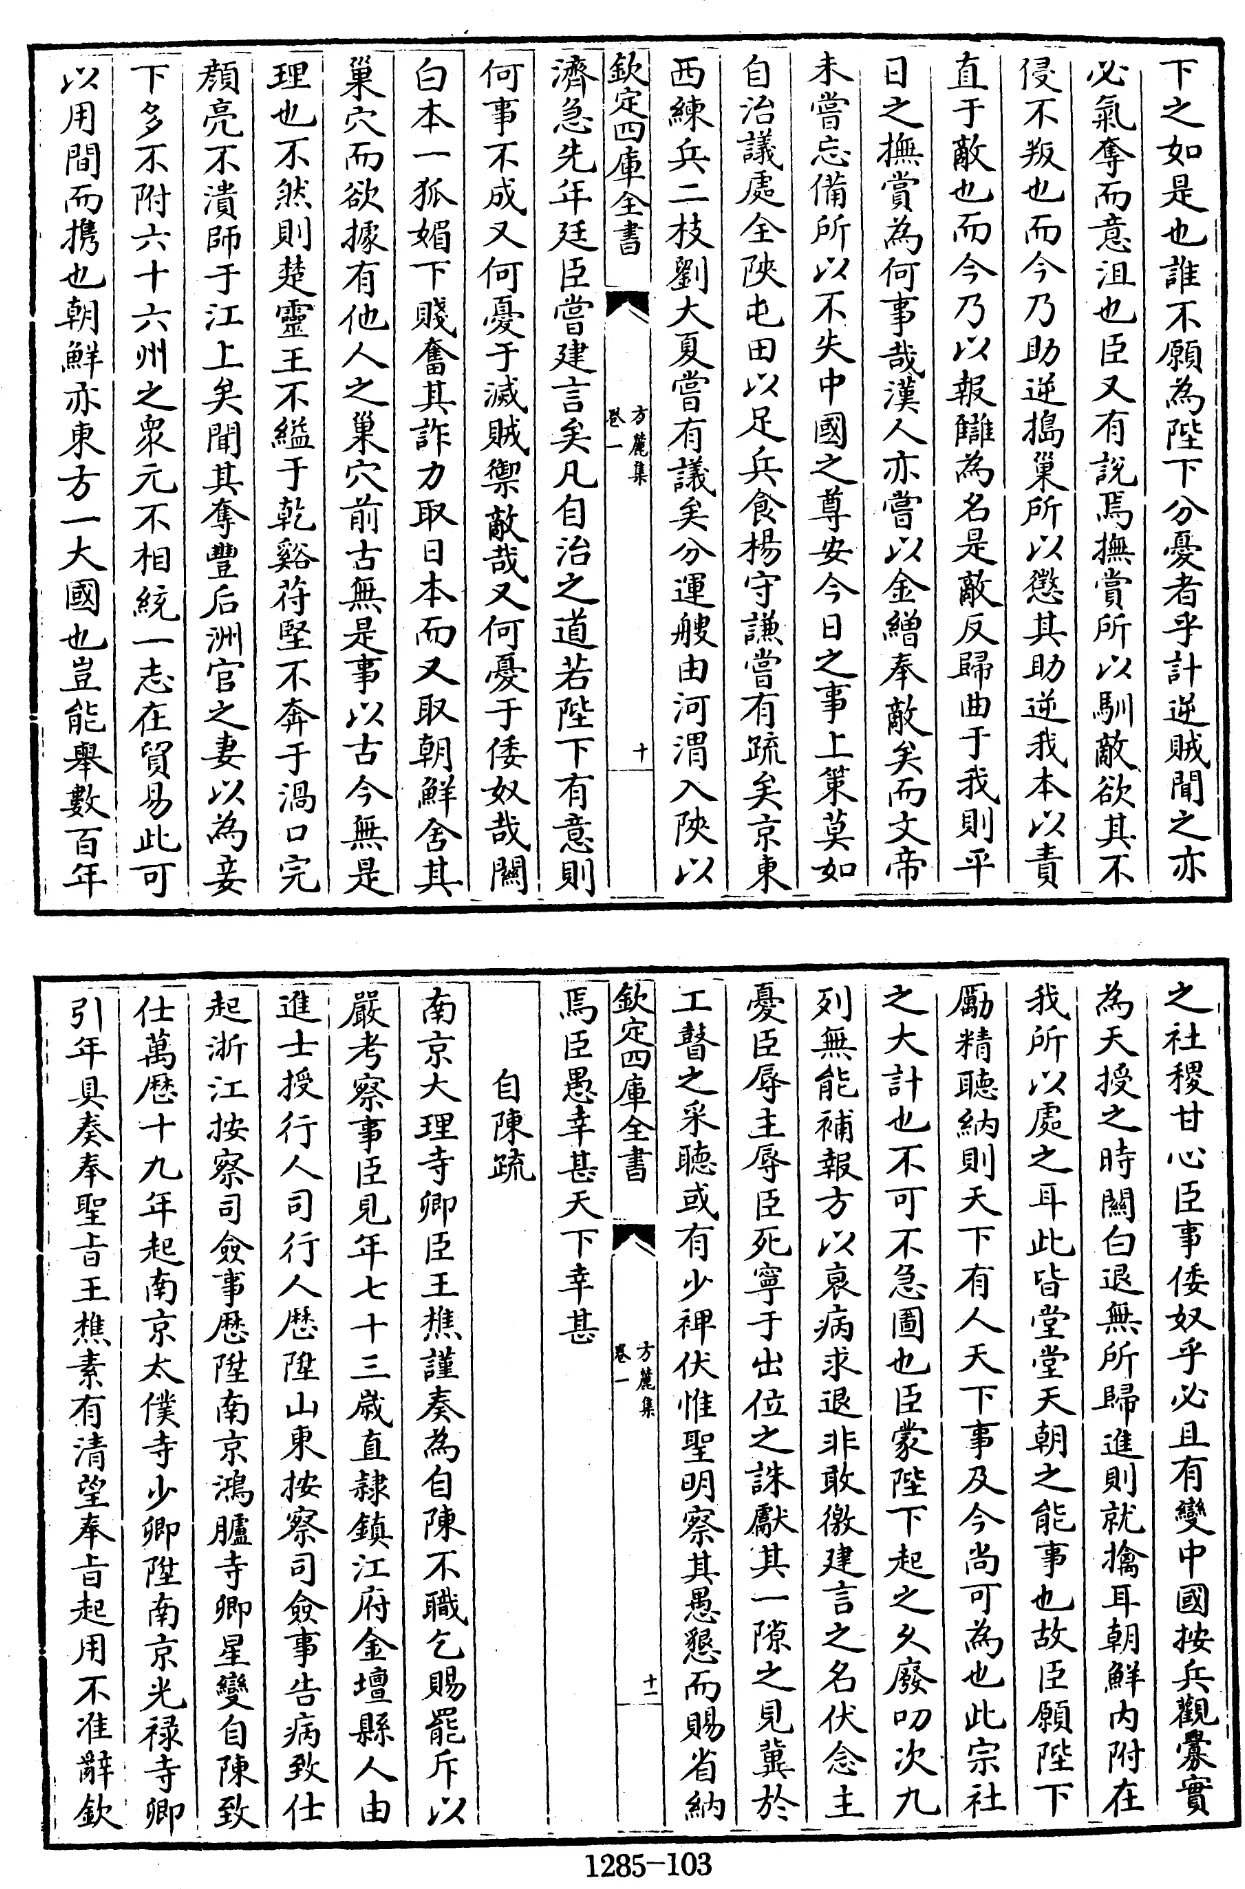 下之如是也誰不願為陛下分憂者乎計逆賊聞之亦
必氣奪而意沮也臣又有說焉撫賞所以馴敵欲其不
侵不叛也而今乃助逆搗巢所以懲其助逆我本以責
直于敵也而今乃以報讎為名是敵反歸曲于我則平
日之撫賞為何事哉漢人亦嘗以金繒奉敵矣而文帝
未嘗忘備所以不失中國之尊安今日之事上策莫如
自治議處全陜屯田以足兵食楊守謙嘗有疏矣京東
西練兵二枝劉大夏嘗有議矣分運艘由河渭入陜以
欽定四庫全書
方麓集
卷一
十
濟急先年廷臣嘗建言矣凡自治之道若陛下有意則
何事不成又何憂于滅賊禦敵哉又何憂于倭奴哉關
白本一狐媚下賤奮其詐力取日本而又取朝鮮舍其
巢穴而欲據有他人之巢穴前古無是事以古今無是
理也不然則楚靈王不縊于乾谿苻堅不奔于渦口完
顏亮不潰師于江上矣聞其奪豐后洲官之妻以為妾
下多不附六十六州之衆元不相統一志在貿易此可
以用間而携也朝鮮亦東方一大國也豈能舉數百年
之社稷甘心臣事倭奴乎必且有變中國按兵觀釁實
為天授之時關白退無所歸進則就擒耳朝鮮內附在
我所以處之耳此皆堂堂天朝之能事也故臣願陛下
勵精聽納則天下有人天下事及今尚可為也此宗社
之大計也不可不急圖也臣蒙陛下起之久廢叨次九
列無能補報方以衰病求退非敢徼建言之名伏念主
憂臣辱主辱臣死寧于出位之誅獻其一隙之見冀於
工瞽之采聽或有少裨伏惟聖明察其愚懇而賜省納
欽定四庫全書
方麓集
卷一
十一
焉臣愚幸甚天下幸甚
自陳疏
南京大理寺卿臣王樵謹奏為自陳不職乞賜罷斥以
嚴考察事臣見年七十三歲直隸鎮江府金壇縣人由
進士授行人司行人歷陞山東按察司僉事告病致仕
起浙江按察司僉事歷陞南京鴻臚寺卿星變自陳致
仕萬歷十九年起南京太僕寺少卿陞南京光祿寺卿
引年具奏奉聖旨王樵素有清望奉旨起用不准辭欽
1285-103